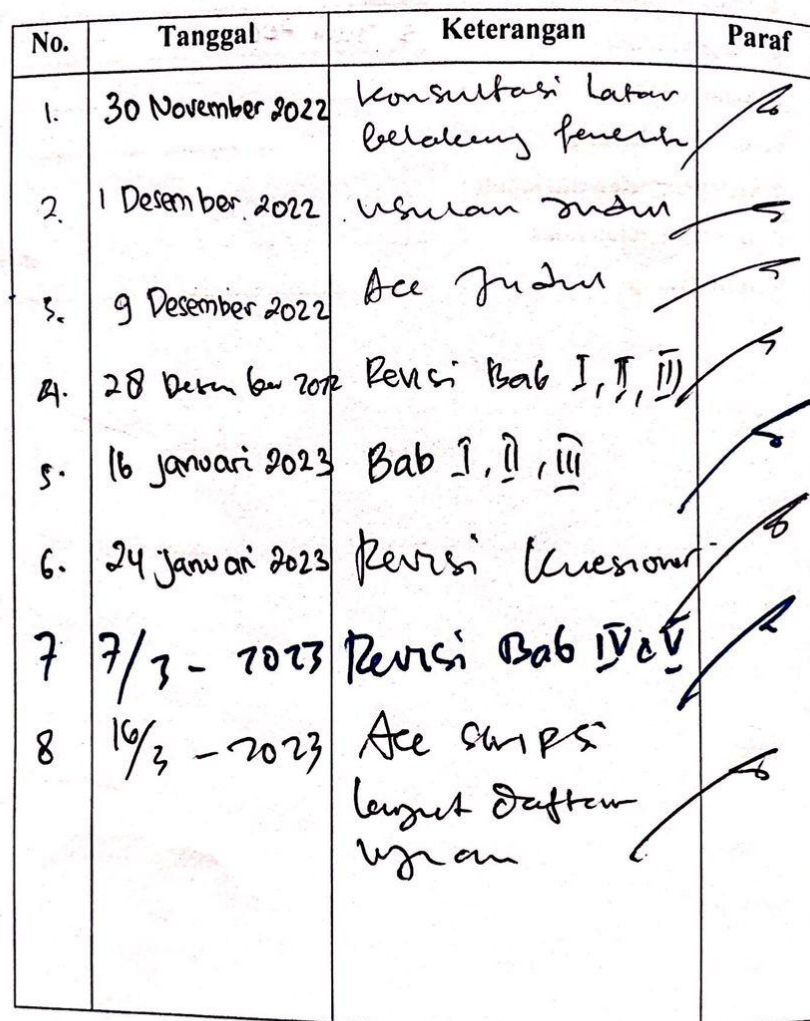 No. Tanggal Keterangan Paraf
1. 30 November 2022 Konsultasi Latar
belakang
2. 1 Desember 2022 usulan Judul
3. 9 Desember 2022 Acc Judul
4. 28 Desember 2022 Revisi Bab I, II, III
5. 16 Januari 2023 Bab I, II, III
6. 24 Januari 2023 Revisi Kuesioner
7 7/3 - 2023 Revisi Bab IV & V
8 16/3 - 2023 Acc skripsi
lanjut daftar
ujian